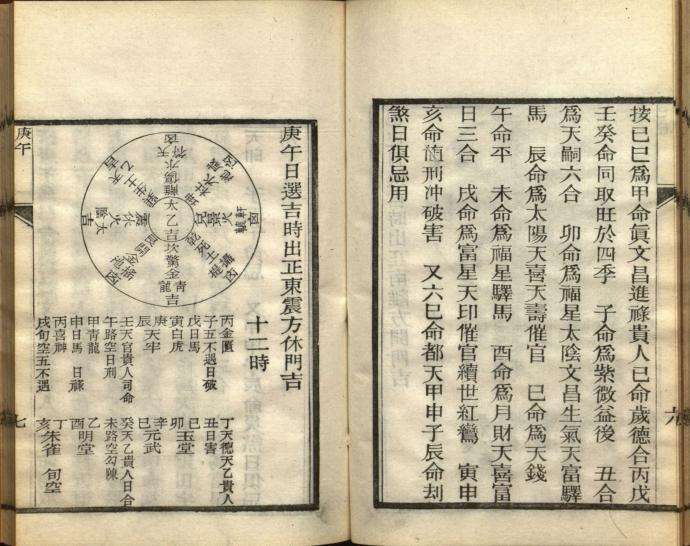 按已巳爲甲命眞文昌進祿貴人已命歲德合丙戊
壬癸命同取旺於四季　子命爲紫微益後　丑合
爲天嗣六合　卯命爲福星太陰文昌生氣天富驛
馬　辰命爲太陽天喜天壽催官　巳命爲天錢
午命平　未命爲福星驛馬　酉命爲月財天喜富
日三合　戌命爲富星天印催官續世紅鸞　寅申
亥命值刑冲破害　又六巳命都天甲申子辰命刦
煞日俱忌用
六
庚午日選吉時出正東震方休門吉
十二時
丙金匱
子五不遇日破
丁天德天乙貴人
丑日害
戊日馬
寅白虎
己
卯玉堂
庚
辰天牢
辛
巳元武
壬天官貴人司命
午路空日刑
癸天乙貴人日合
未路空勾陳
甲青龍
申日馬　日祿
乙
酉明堂
丙喜神
戌旬空五不遇
丁
亥朱雀　旬空
庚午
七